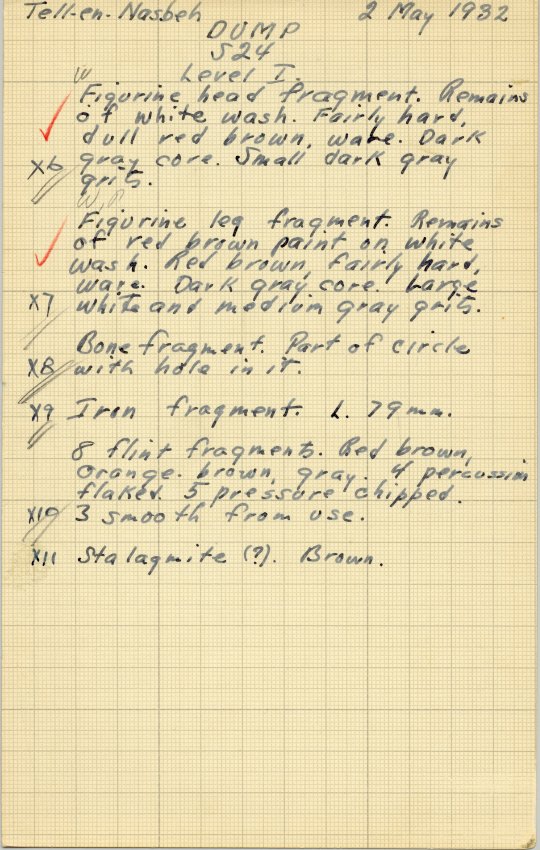 Tell-en-Nasbeh 2 May 1932
DUMP
S24
Level I.
W
Figurine head fragment. Remains
of white wash. Fairly hard,
dull red brown, ware. Dark
x6 gray core. Small dark gray
grits.
Figurine leg fragment. Remains
of red brown paint on white
wash. Red brown, fairly hard,
ware. Dark gray core. Large
x7 white and medium gray grits.
Bone fragment. Part of circle
x8 with hole in it.
x9 Iron fragment. L. 79mm.
8 flint fragments. Red brown,
orange-brown, gray. 4 percussion
flaked. 5 pressure chipped.
x10 3 smooth from use.
x11 Stalagmite (?). Brown.